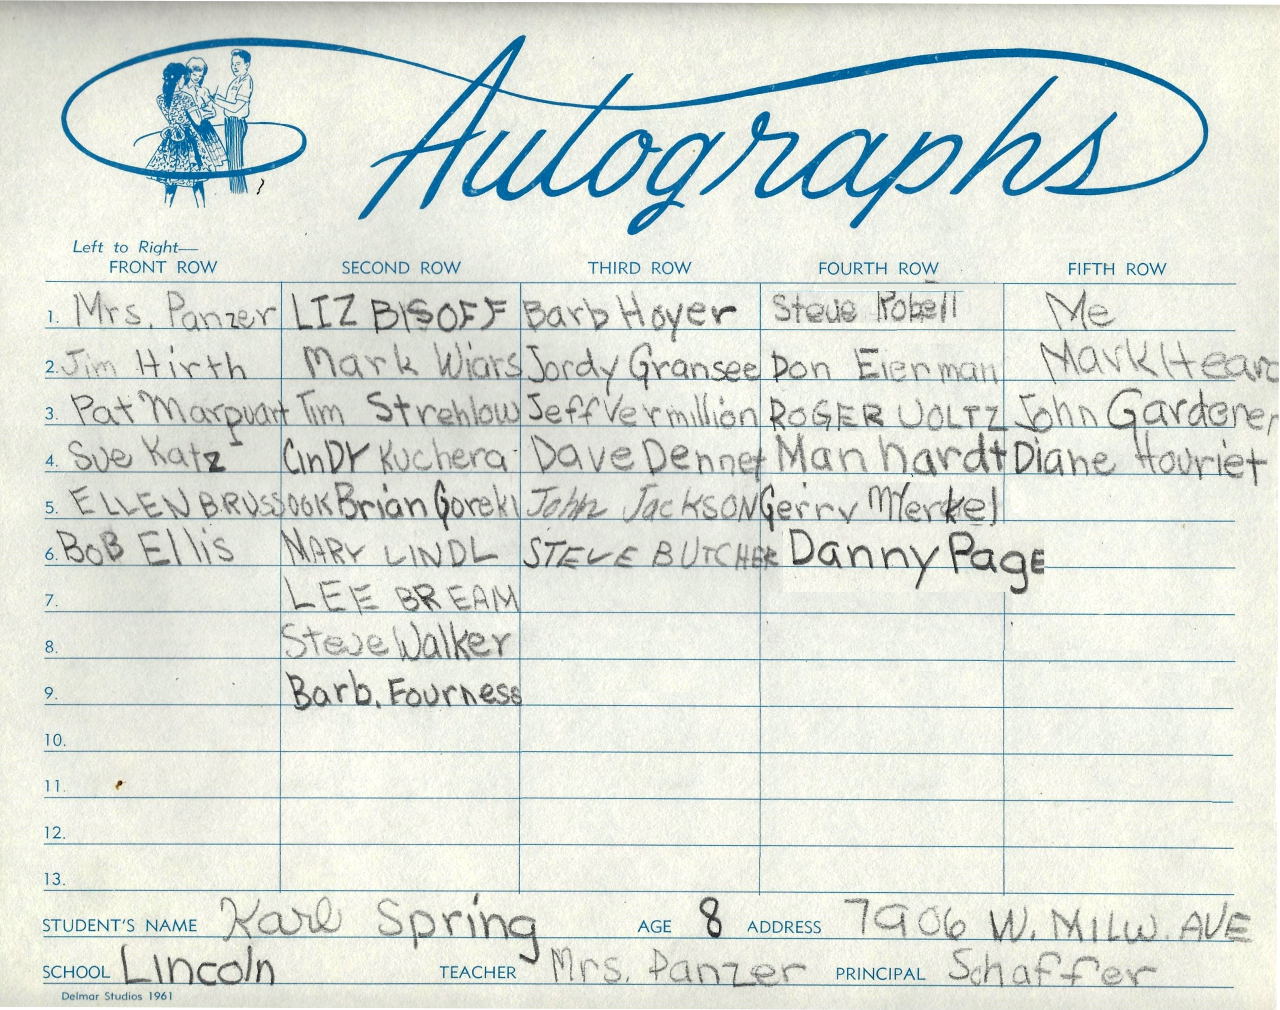 Autographs
Left to Right—
FRONT ROW SECOND ROW THIRD ROW FOURTH ROW FIFTH ROW
1. Mrs. Panzer LIZ BISOFF Barb Hoyer Steve Robell Me
2. Jim Hirth Mark Wiars Jordy Gransee Don Eierman Mark Heard
3. Pat Marquart Tim Strehlow Jeff Vermillion ROGER VOLTZ John Gardener
4. Sue Katz CinDY Kuchera Dave Dennet Manhardt Diane Houriet
5. ELLEN BRUSSOOK Brian Goreki John JacKSON Gerry Merkel
6. BoB Ellis MARY LINDL STEVE BUTCHER Danny Page
7. LEE BREAM
8. Steve Walker
9. Barb. Fourness
10.
11.
12.
13.
STUDENT'S NAME Karl Spring AGE 8 ADDRESS 7906 W. MILW. AVE
SCHOOL Lincoln TEACHER Mrs. Panzer PRINCIPAL Schaffer
Delmar Studios 1961